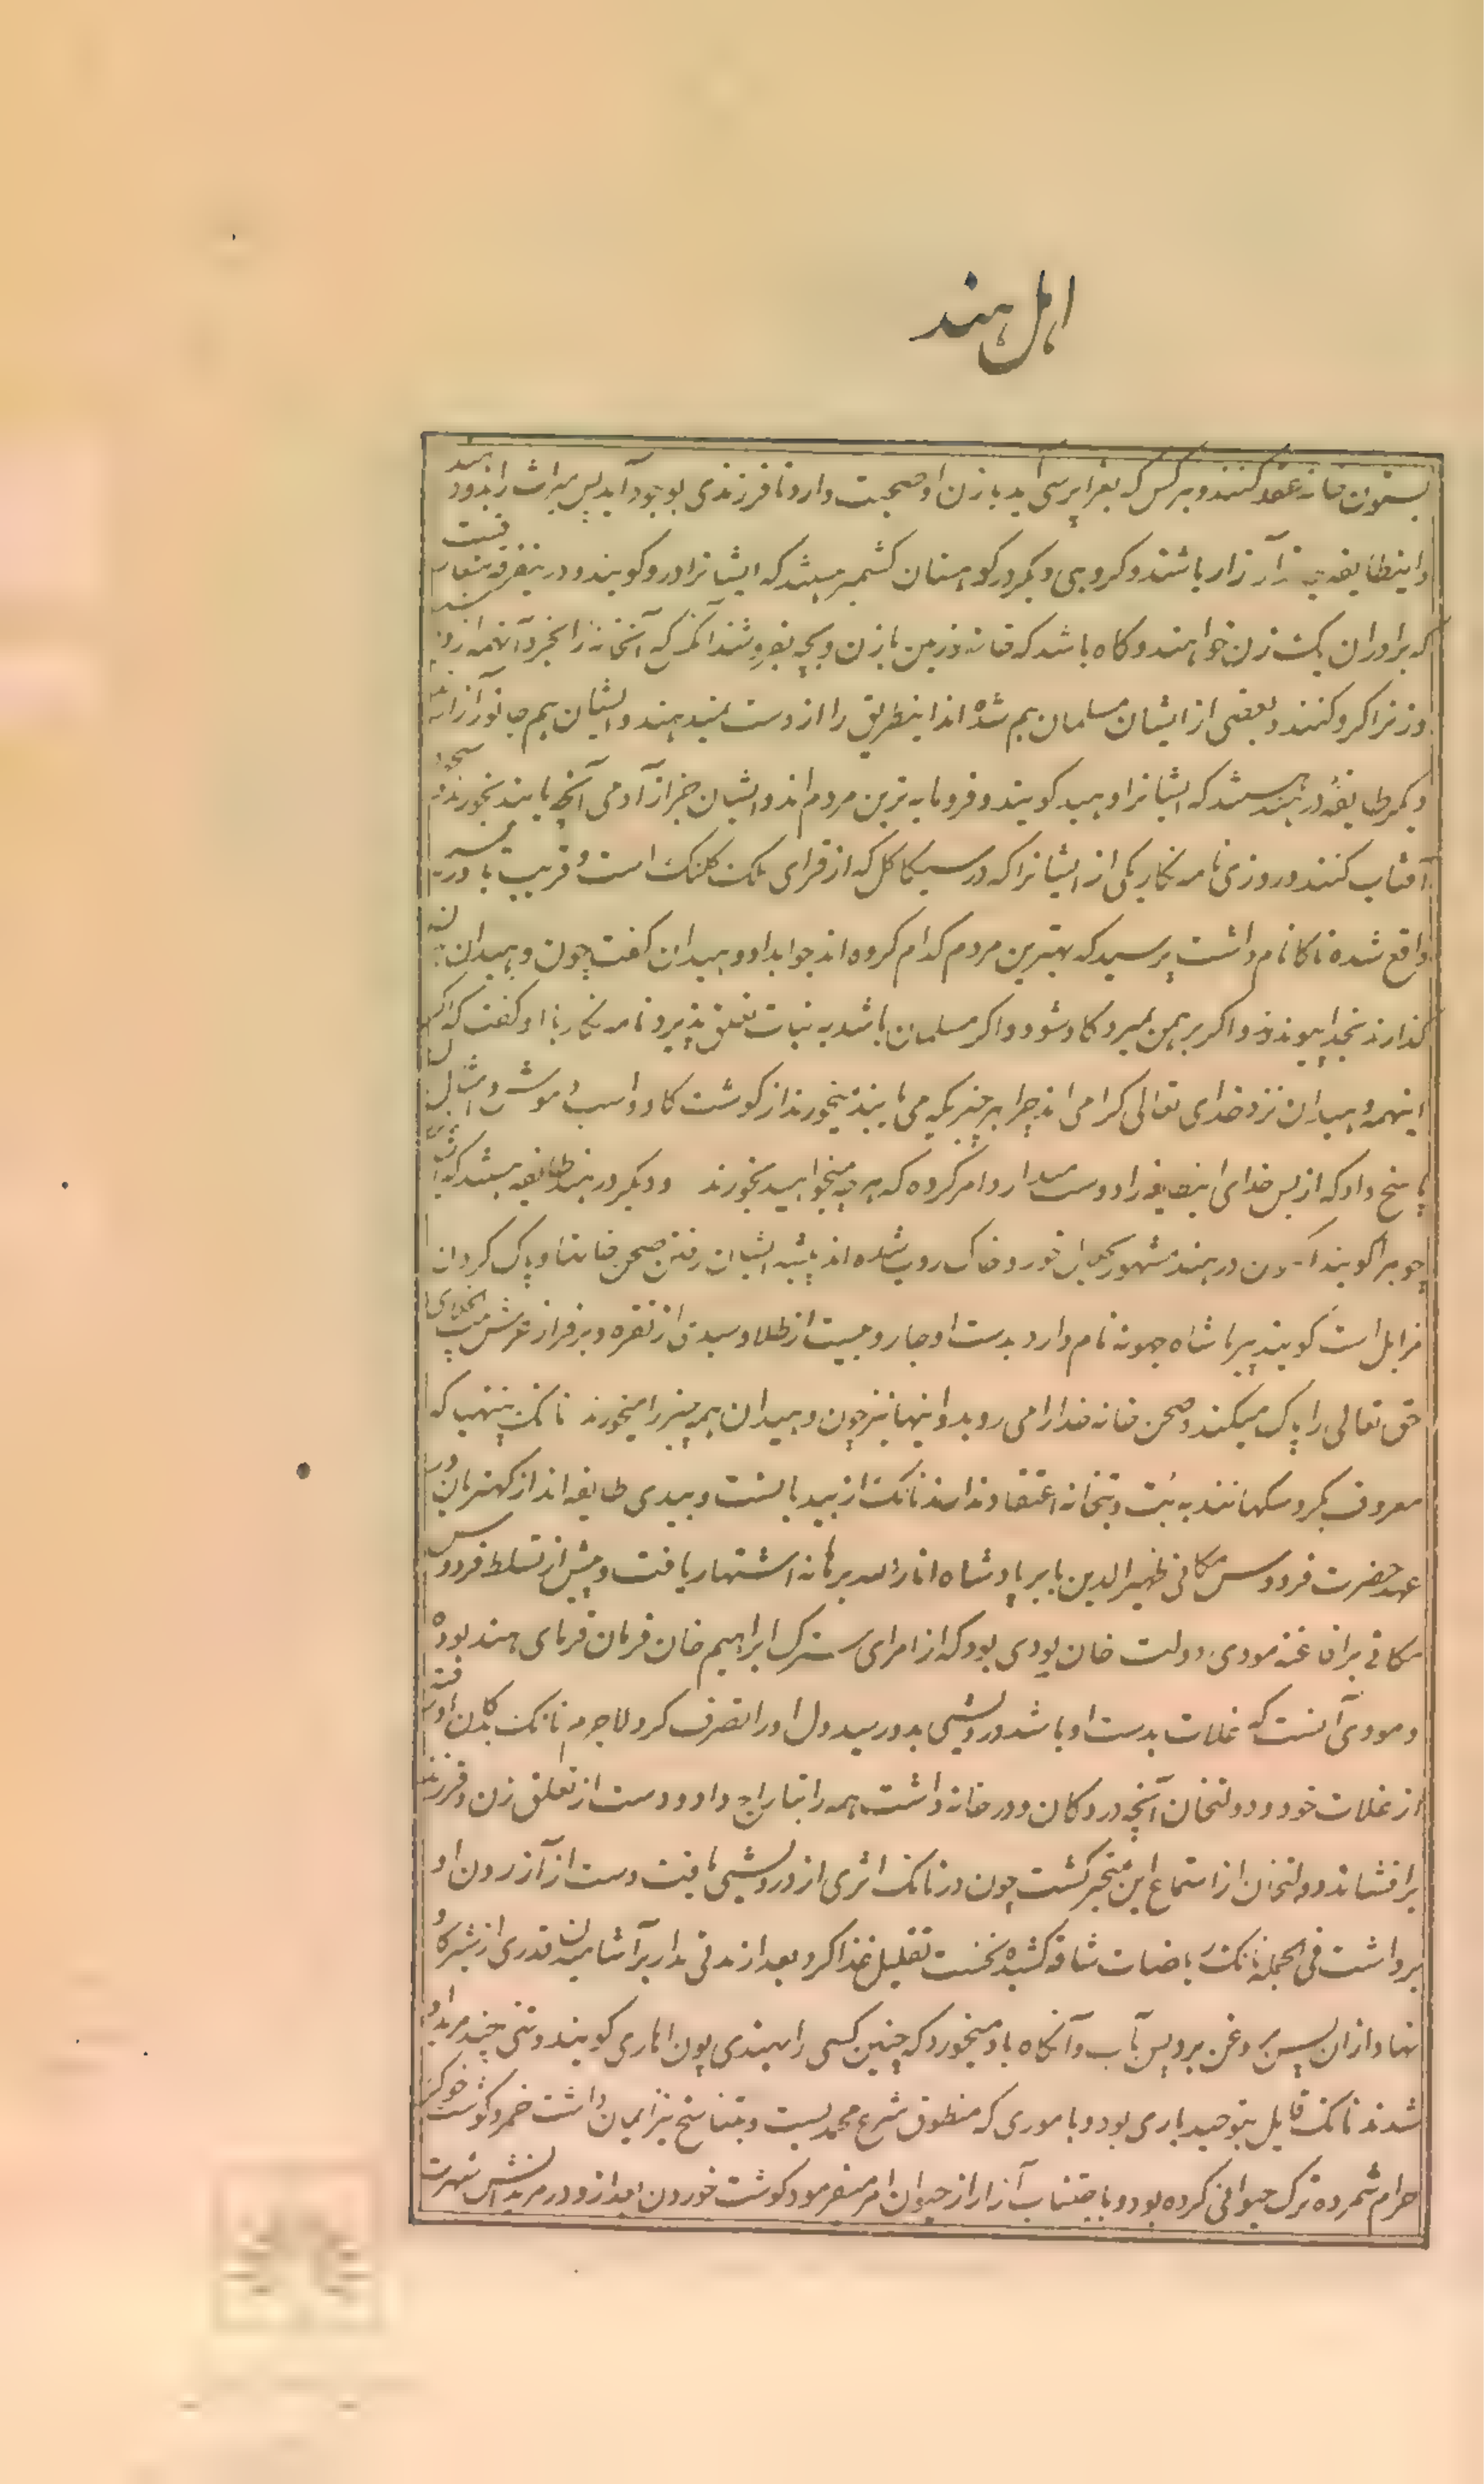 اهل هند
بستون خانه عقد کنند و هر کس که بقرا برسی آید با زن او صحبت دارد تا فرزندی بوجود آید پس میراث را بدو دهند
و اینطایفه بی آزار باشند و کروهی دیکر در کوهستان کشمیر هستند که ایشانرا درو کویند و در ینفرقه متعارفست
که برادران یک زن خواهند و کاه باشد که خانه و زمین با زن و بچه بفروشند آنکس که آنخانه را بخرد آنهمه از
و زنرا کرو کنند و بعضی از ایشان مسلمان هم شده اند اینطریق را از دست نمیدهند و ایشان هم جانور آزارند
دیکر طایفهٔ در هند هستند که ایشانرا دهید کویند و فرومایه ترین مردم اند و ایشان جز از آدمی آنچه یابند بخورند و سجده
آفتاب کنند و روزی نامه نکار یکی از ایشانرا که در سیکاکل که از قرای ملک کلنک است و قریب بدریا
واقع شده ناکا نام داشت پرسید که بهترین مردم کدام کروه اند جواب داد دهیدان کفت چون دهیدان تن
کذارند بخدا پیوندند و اکر برهمن بمیرد کاو شود و اکر مسلمان باشد به نبات تعلق پذیرد نامه نکار باو کفت که اکر
اینهمه دهیدان نزد خدای تعالی کرامی اند چرا هر چیزیکه می یابند میخورند از کوشت کاو و اسب و موش و امثال آن
پاسخ داد که از بس خدای اینطایفه را دوست میدارد امر کرده که هر چه میخواهید بخورند و دیکر در هند طایفه هستند که ایشانرا
چوهرا کویند اکنون در هند مشهور بحلال خور و خاک روب شده اند پیشه ایشان رفتن صحن خانها و پاک کردن
مزابل است کویند پیر ما شاه جهونه نام دارد بدست او جاروبیست از طلا و سبدی از نقره و بر فراز عرش بیت الخلای
حق تعالی را پاک میکند و صحن خانه خدا را می روبد و اینها نیز چون دهیدان همه چیز را میخورند نانک پنتهی که
معروف بکروسکهانند به بت و بتخانه اعتقاد ندارند نانک از بیدیانست و بیدی طایفه اند از کهتریان در
عهد حضرت فردوس مکانی ظهیرالدین بابر پادشاه انار الله برهانه اشتهار یافت و پیش از تسلط فردوس
مکانی بر افاغنه مودی دولت خان لودی بود که از امرای سترک ابراهیم خان فرمان فرمای هند بوده
و مودی آنست که غلات بدست او باشد درویشی بدو رسید دل او را تصرف کرد لاجرم نانک بدکان او رفته
از غلات خود و دولتخان آنچه در دکان و در خانه داشت همه را بتاراج داد و دست از تعلق زن و فرزند
بر افشاند و دولتخان از استماع این متحیر کشت چون در نانک اثری از درویشی یافت دست از آزردن او
برداشت فی الجمله نانک ریاضات شاقه کشیده نخست تقلیل غذا کرد بعد از مدتی مدار بر آشامیدن قدری از شیر کاو
نهاد از ان پس بر روغن پس بر آب و آنکاه باد میخورد که چنین کسی را بهندی پون اهاری کویند و تنی چند مرید او
شدند نانک قایل بتوحید باری بود و با موری که منطوق شرع محمدیست و بتناسخ نیز ایمان داشت خمر و کوشت خوک را
حرام شمرده ترک حیوانی کرده بود و باجتناب آزار از حیوان امر میفرمود کوشت خوردن بعد از و در مریدانش شهرت